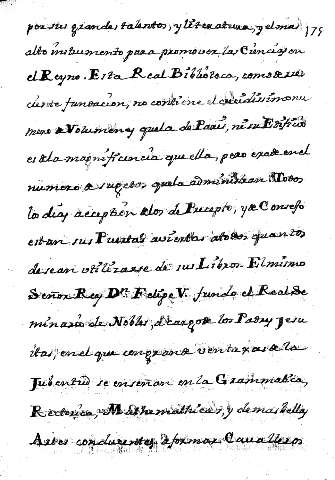 por sus grandes talentos, y literatura, y el mas 175
alto instrumento para promover las Ciencias en
el Reyno. Esta Real Biblioteca, como de re
ciente fundacion, no contiene el crecidissimo nu
mero de Volumenes que la de Paris, ni su Edificio
es de la magnificiencia que ella, pero excede en el
numero de sugetos que la administran. Todos
los dias a excepcion de los de Precepto, y de Consejo
estan sus Puertas aviertas a todos quantos
desean utilizarse de sus Libros. El mismo
Señor Rey Dn. Felipe V. fundo el Real Se
minario de Nobles, a cargo de los Padres Jesu
itas, en el que con grande ventaxas de la
Jubentud se enseñan en la Grammatica,
Rectorica, Mathemathicas, y demas bellas
Artes conducentes a formar Cavalleros